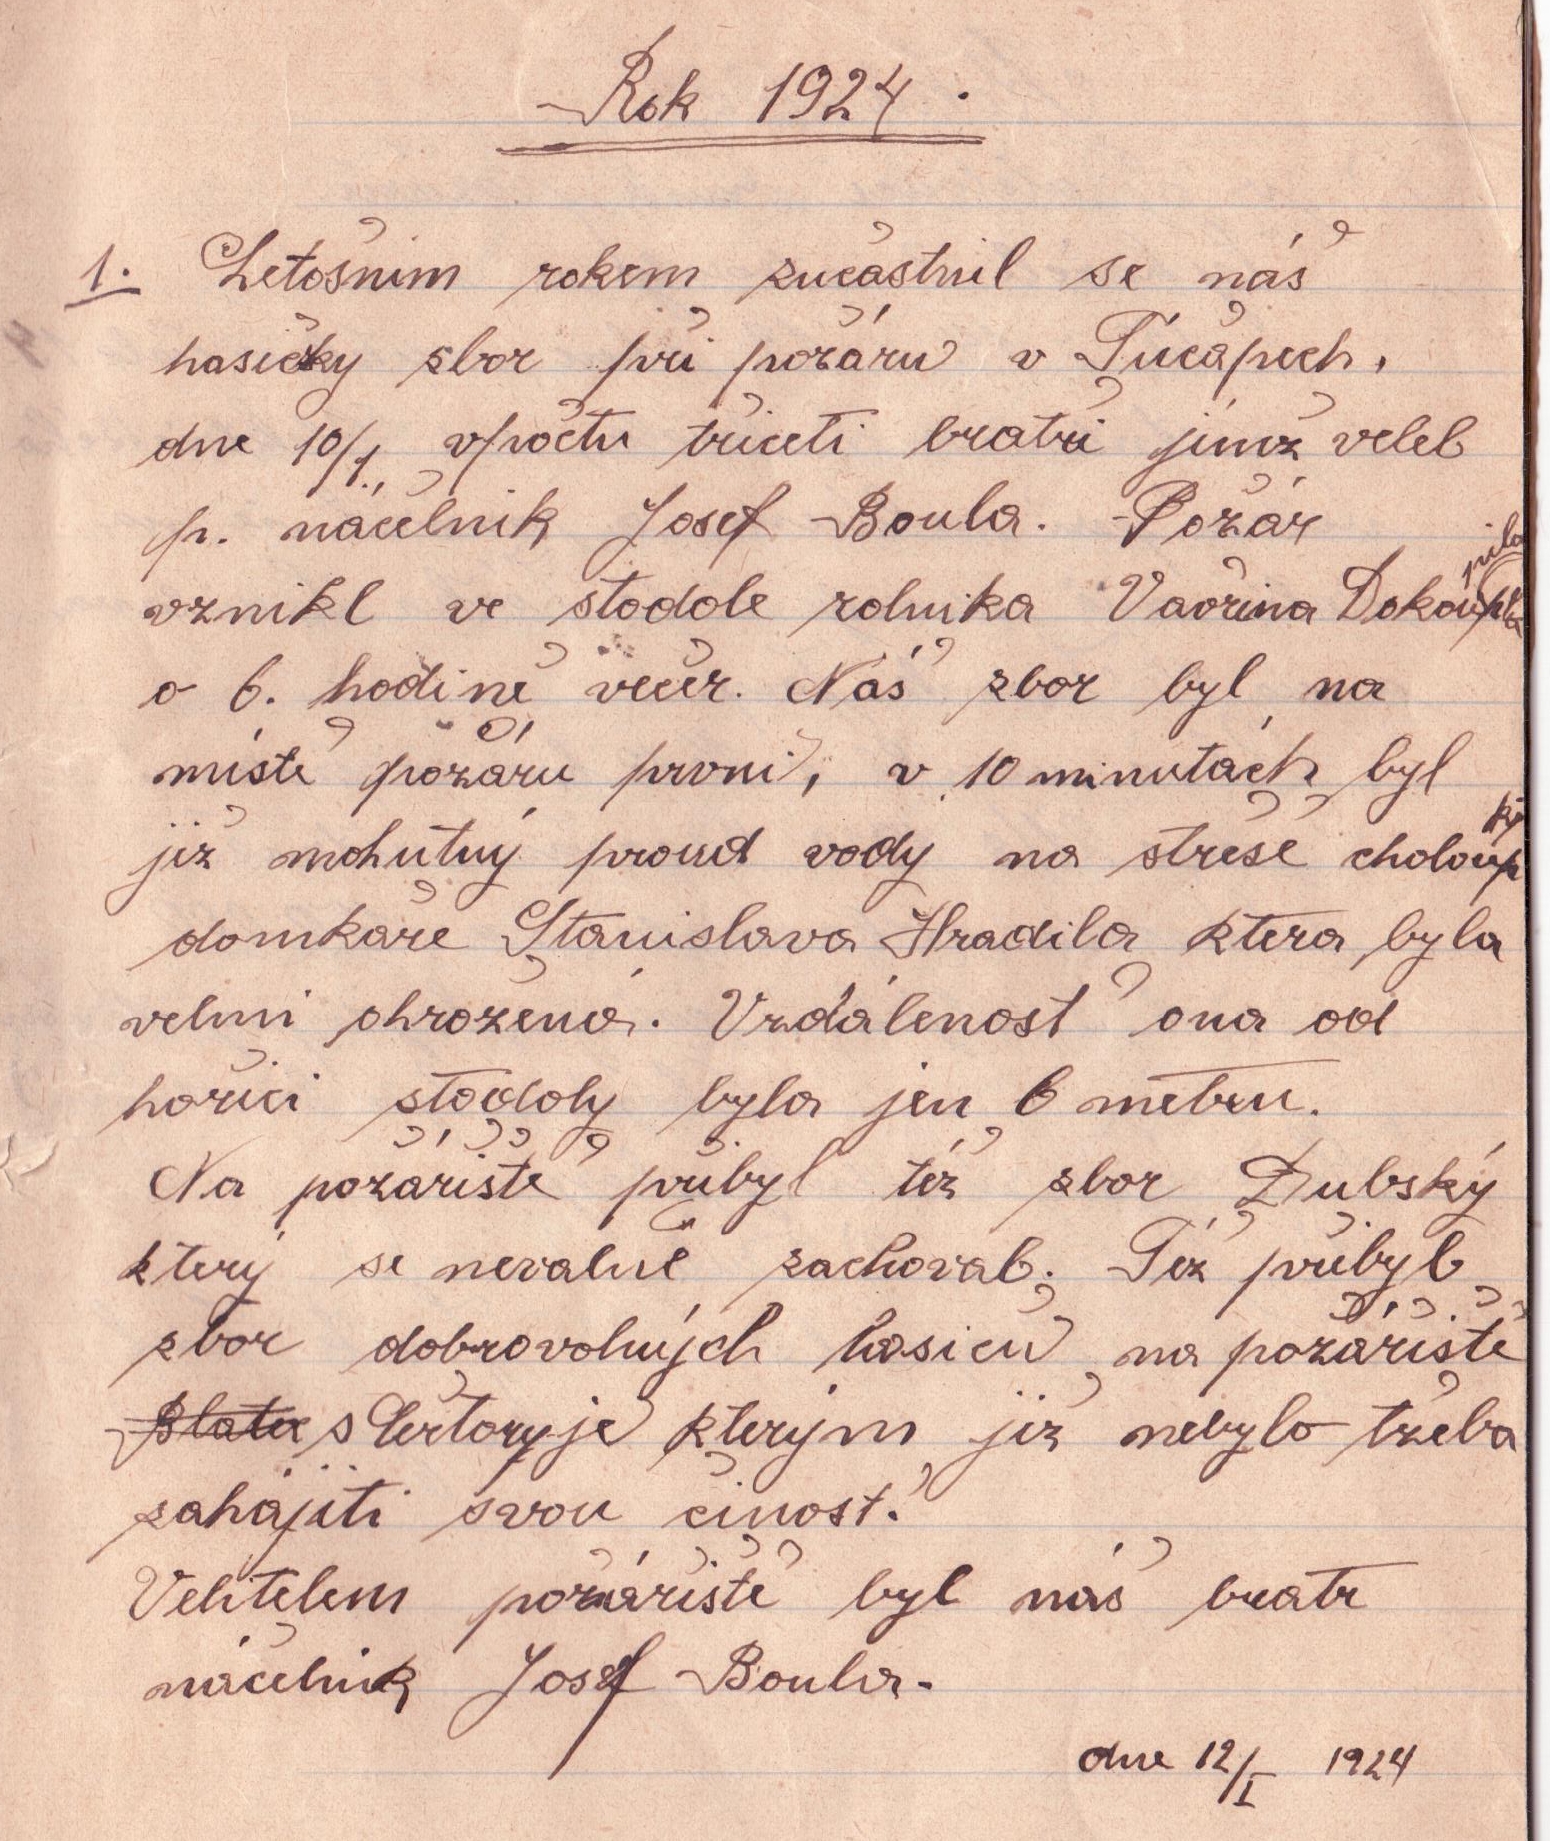 Rok 1924.
1. Letošnim rokem zučastnil se náš
hasičky sbor při požáru v Túčapech,
dne 10/1, vpočtu třiceti bratři jímž velel
p. náčelnik Josef Boula. Požár
vznikl ve stodole rolnika Vavřina Dokoupila
o 6. hodině večer. Náš zbor byl na
místě požáru prvni, v 10 minutách byl
již mohutný proud vody na střeše choloupky
domkaře Stanislava Hradila ktera byla
velmi ohrožená. Vzdálenosť ona od
hořici stodoly byla jen 6 metru.
Na požářiště přibyl též zbor Dubský
který se nevalně zachoval. Též přibyl
zbor dobrovolných hasičů na požářiště
Blate s Čertoryje kterým již nebylo třeba
zahájiti svou činosť.
Velitelem požářiště byl náš bratr
náčelnik Josef Boula.
dne 12/I 1924